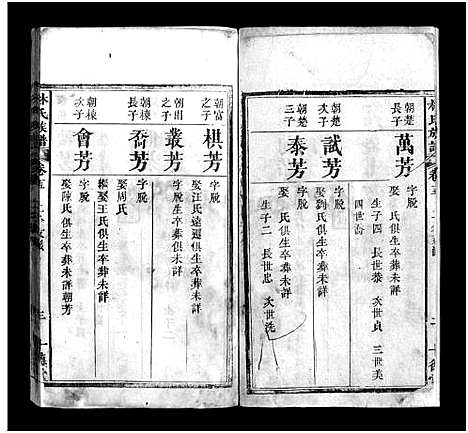 林氏族譜
卷五
朝楚
長子
萬芳
字脫
娶 氏俱生卒葬未詳
生子四 長世泰 次世貞 三世美
四世喬
朝楚
次子
試芳
字脫
娶劉氏俱生卒葬未詳
朝楚
三子
泰芳
字脫
娶 氏俱生卒葬未詳
生子二 長世忠 次世洗
朝富
之子
棋芳
字脫
娶汪氏 俱生卒葬未詳
之子
叢芳
字脫
生卒葬俱未詳
朝棟
長子
喬芳
字脫
娶周氏
繼娶王氏俱生卒葬未詳
朝棟
次子
會芳
字脫
娶陳氏俱生卒葬未詳朝芳
林氏族譜
卷五
三